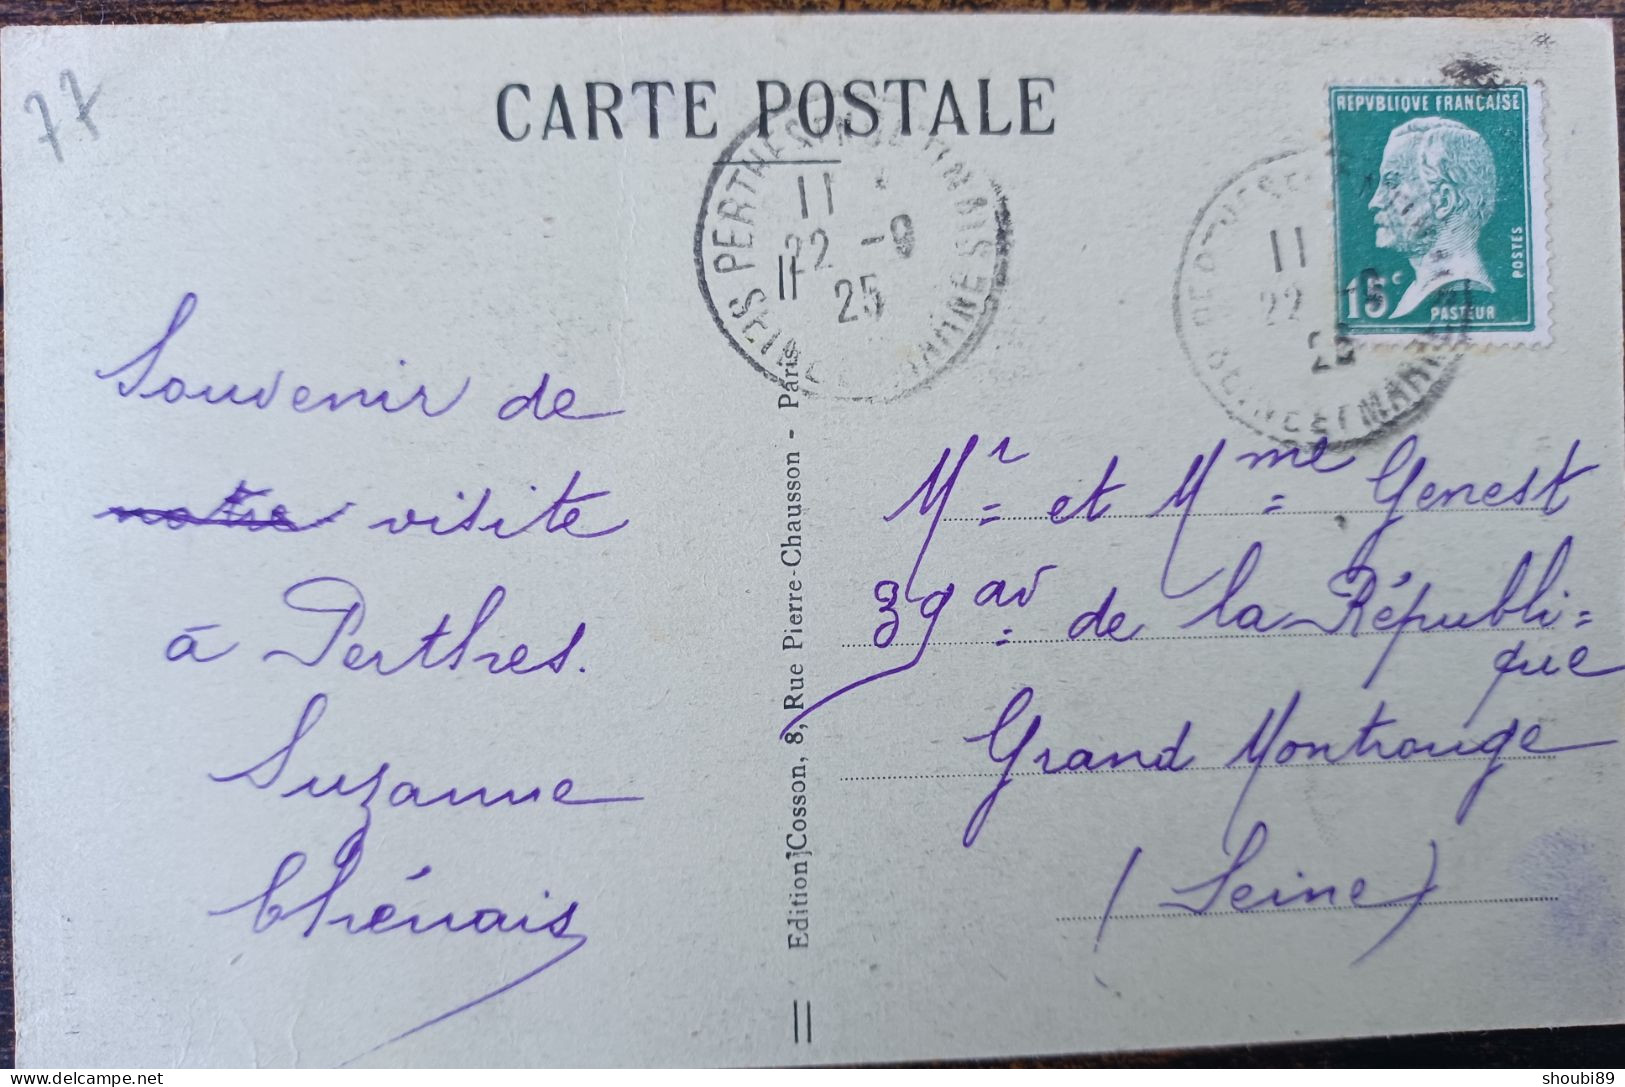 77
CARTE POSTALE
PERTHES EN GATINAIS
11
22 -9
25
SEINE ET MARNE
REPVBLIQVE FRANÇAISE
POSTES
15c
PASTEUR
11
22
SEINE ET MARNE
Souvenir de
~~notre~~ visite
à Perthes.
Suzanne
Thénais
Edition Cosson, 8, Rue Pierre-Chausson - Paris
Mr et Mme Genest
39 av de la Républi=
que
Grand Montrouge
(Seine)
shoubi89